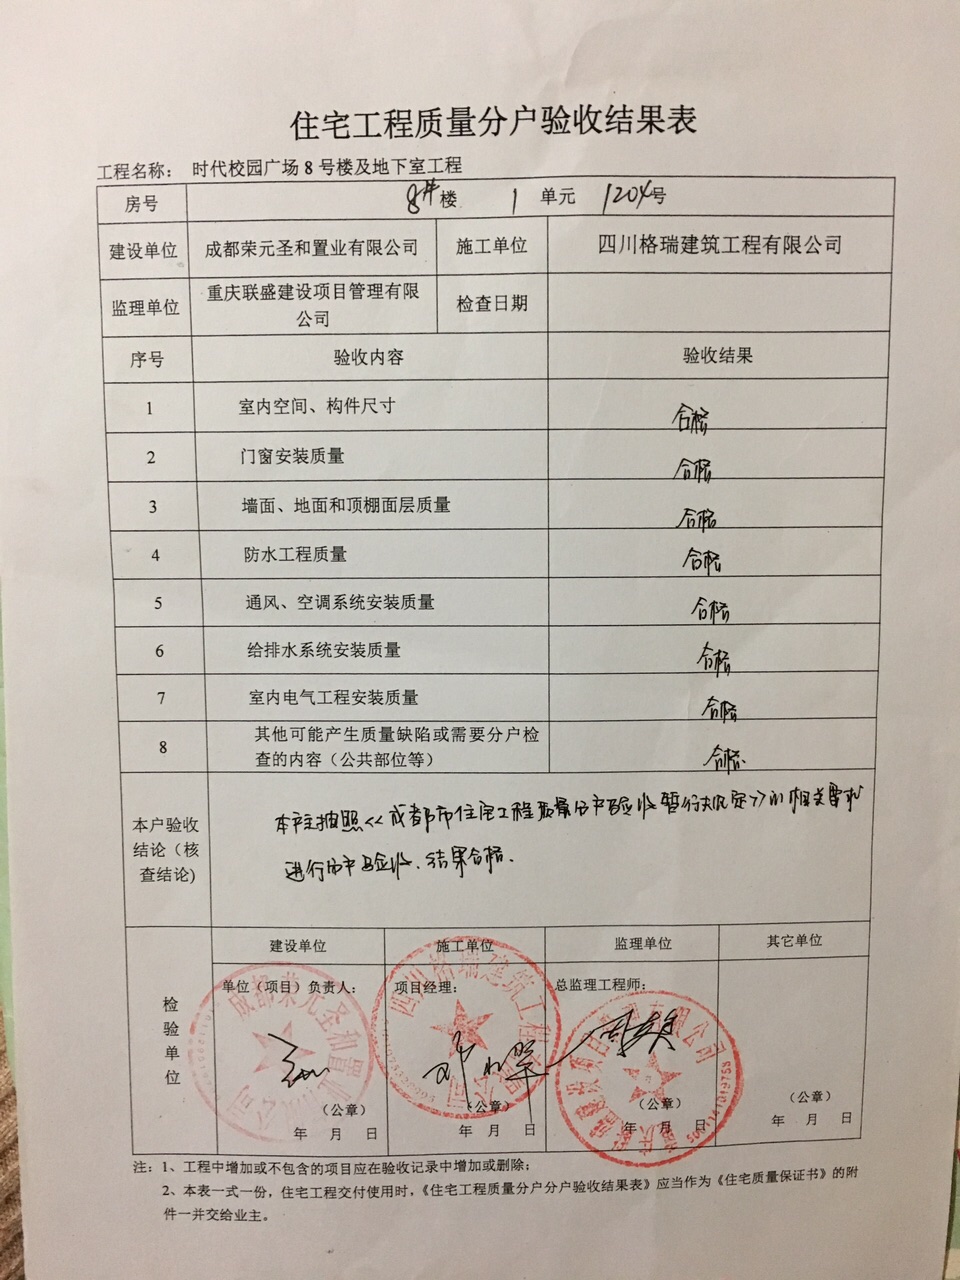 住宅工程质量分户验收结果表
工程名称： 时代校园广场8号楼及地下室工程
房号 8#楼 1 单元 1204号
建设单位 成都荣元圣和置业有限公司 施工单位 四川格瑞建筑工程有限公司
监理单位 重庆联盛建设项目管理有限公司 检查日期
序号 验收内容 验收结果
1 室内空间、构件尺寸 合格
2 门窗安装质量 合格
3 墙面、地面和顶棚面层质量 合格
4 防水工程质量 合格
5 通风、空调系统安装质量 合格
6 给排水系统安装质量 合格
7 室内电气工程安装质量 合格
8 其他可能产生质量缺陷或需要分户检
查的内容（公共部位等） 合格.
本户验收
结论（核
查结论)
本户按照<<成都市住宅工程质量分户验收暂行规定>>的相关要求
进行分户验收、结果合格.
检验单位
建设单位 施工单位 监理单位 其它单位
单位（项目）负责人： 项目经理： 总监理工程师：
成都荣元圣和置业有限公司
四川格瑞建筑工程有限公司
（公章） （公章） （公章） （公章）
年 月 日 年 月 日 年 月 日 年 月 日
注：1、工程中增加或不包含的项目应在验收记录中增加或删除；
2、本表一式一份，住宅工程交付使用时，《住宅工程质量分户分户验收结果表》应当作为《住宅质量保证书》的附
件一并交给业主。